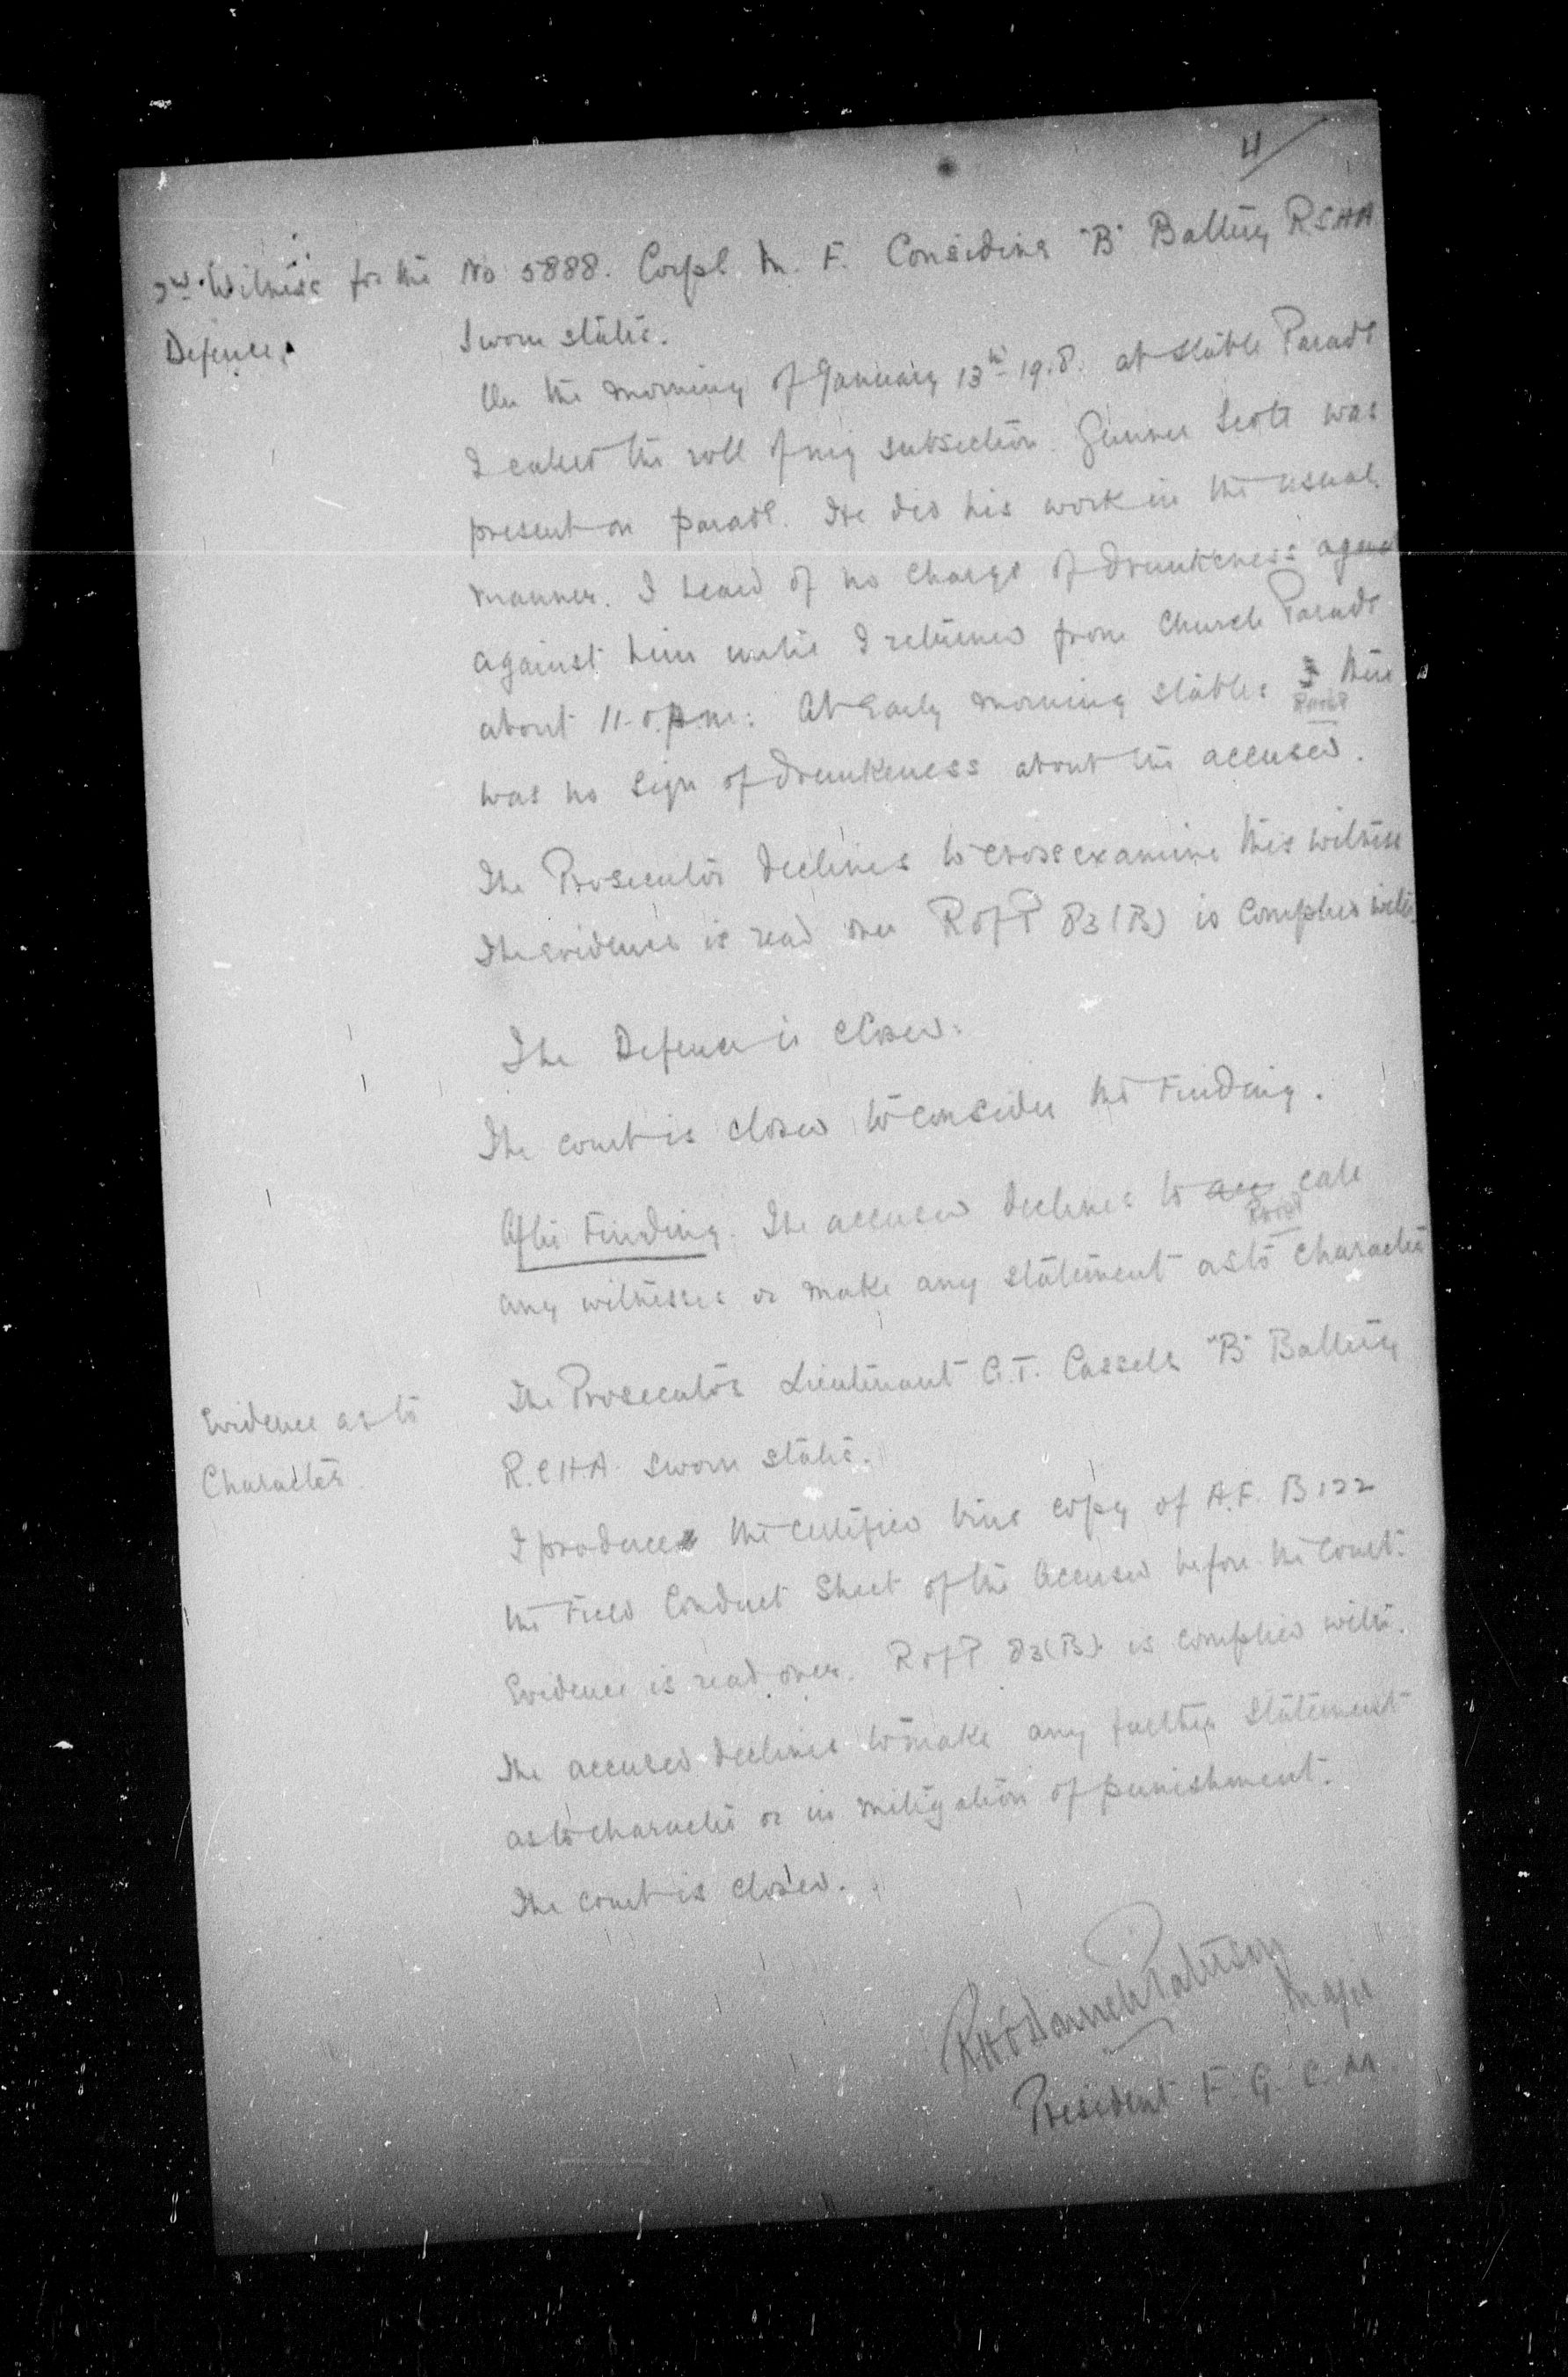 4/
2nd Witness for the Defence.
No 5888. Corpl M. F. Considine "B" Battery R.C.H.A
Sworn states.
On the morning of January 13th 1918. at stable Parade
I called the roll of my subsection. Gunner Scott was
present on parade. He did his work in the usual
manner. I heard of no charge of drunkeness
against him until I returned from Church Parade
about 11-0. m: At Early morning stables there
was no sign of drunkeness about the accused.
The Prosecutor declines to cross examine this witness
The evidence is read over R of P 83 (B) is complied with.
The Defence is closed.
The court is closed to consider the Finding.
After Finding. The accused declines to call
any witnesses or make any statement as to character
Evidence as to
Character
The Prosecutor Lieutenant G.T. Cassels "B" Battery
R.C.H.A. sworn states.
I produce the certified true copy of A.F. B122
the Field Conduct Sheet of the Accused before the Court.
Evidence is read over. R of P 83 (B) is complied with.
The accused declines to make any further statement
as to character or in mitigation of punishment.
The court is closed.
Paterson
Major
President F. G. C. M